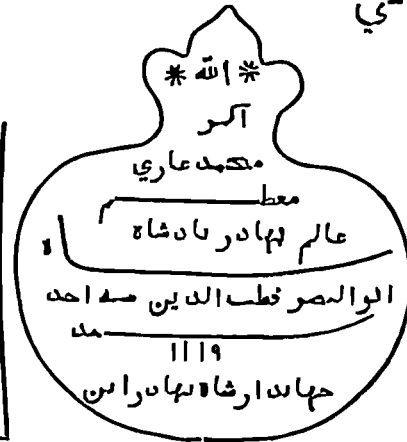 ي
* الله *
اكبر
محمد عاري
معظم
عالم بهادر بادشاه
ابو النصر قطب الدين احد
١١١٩
جهاندار شاه بهادر ابن